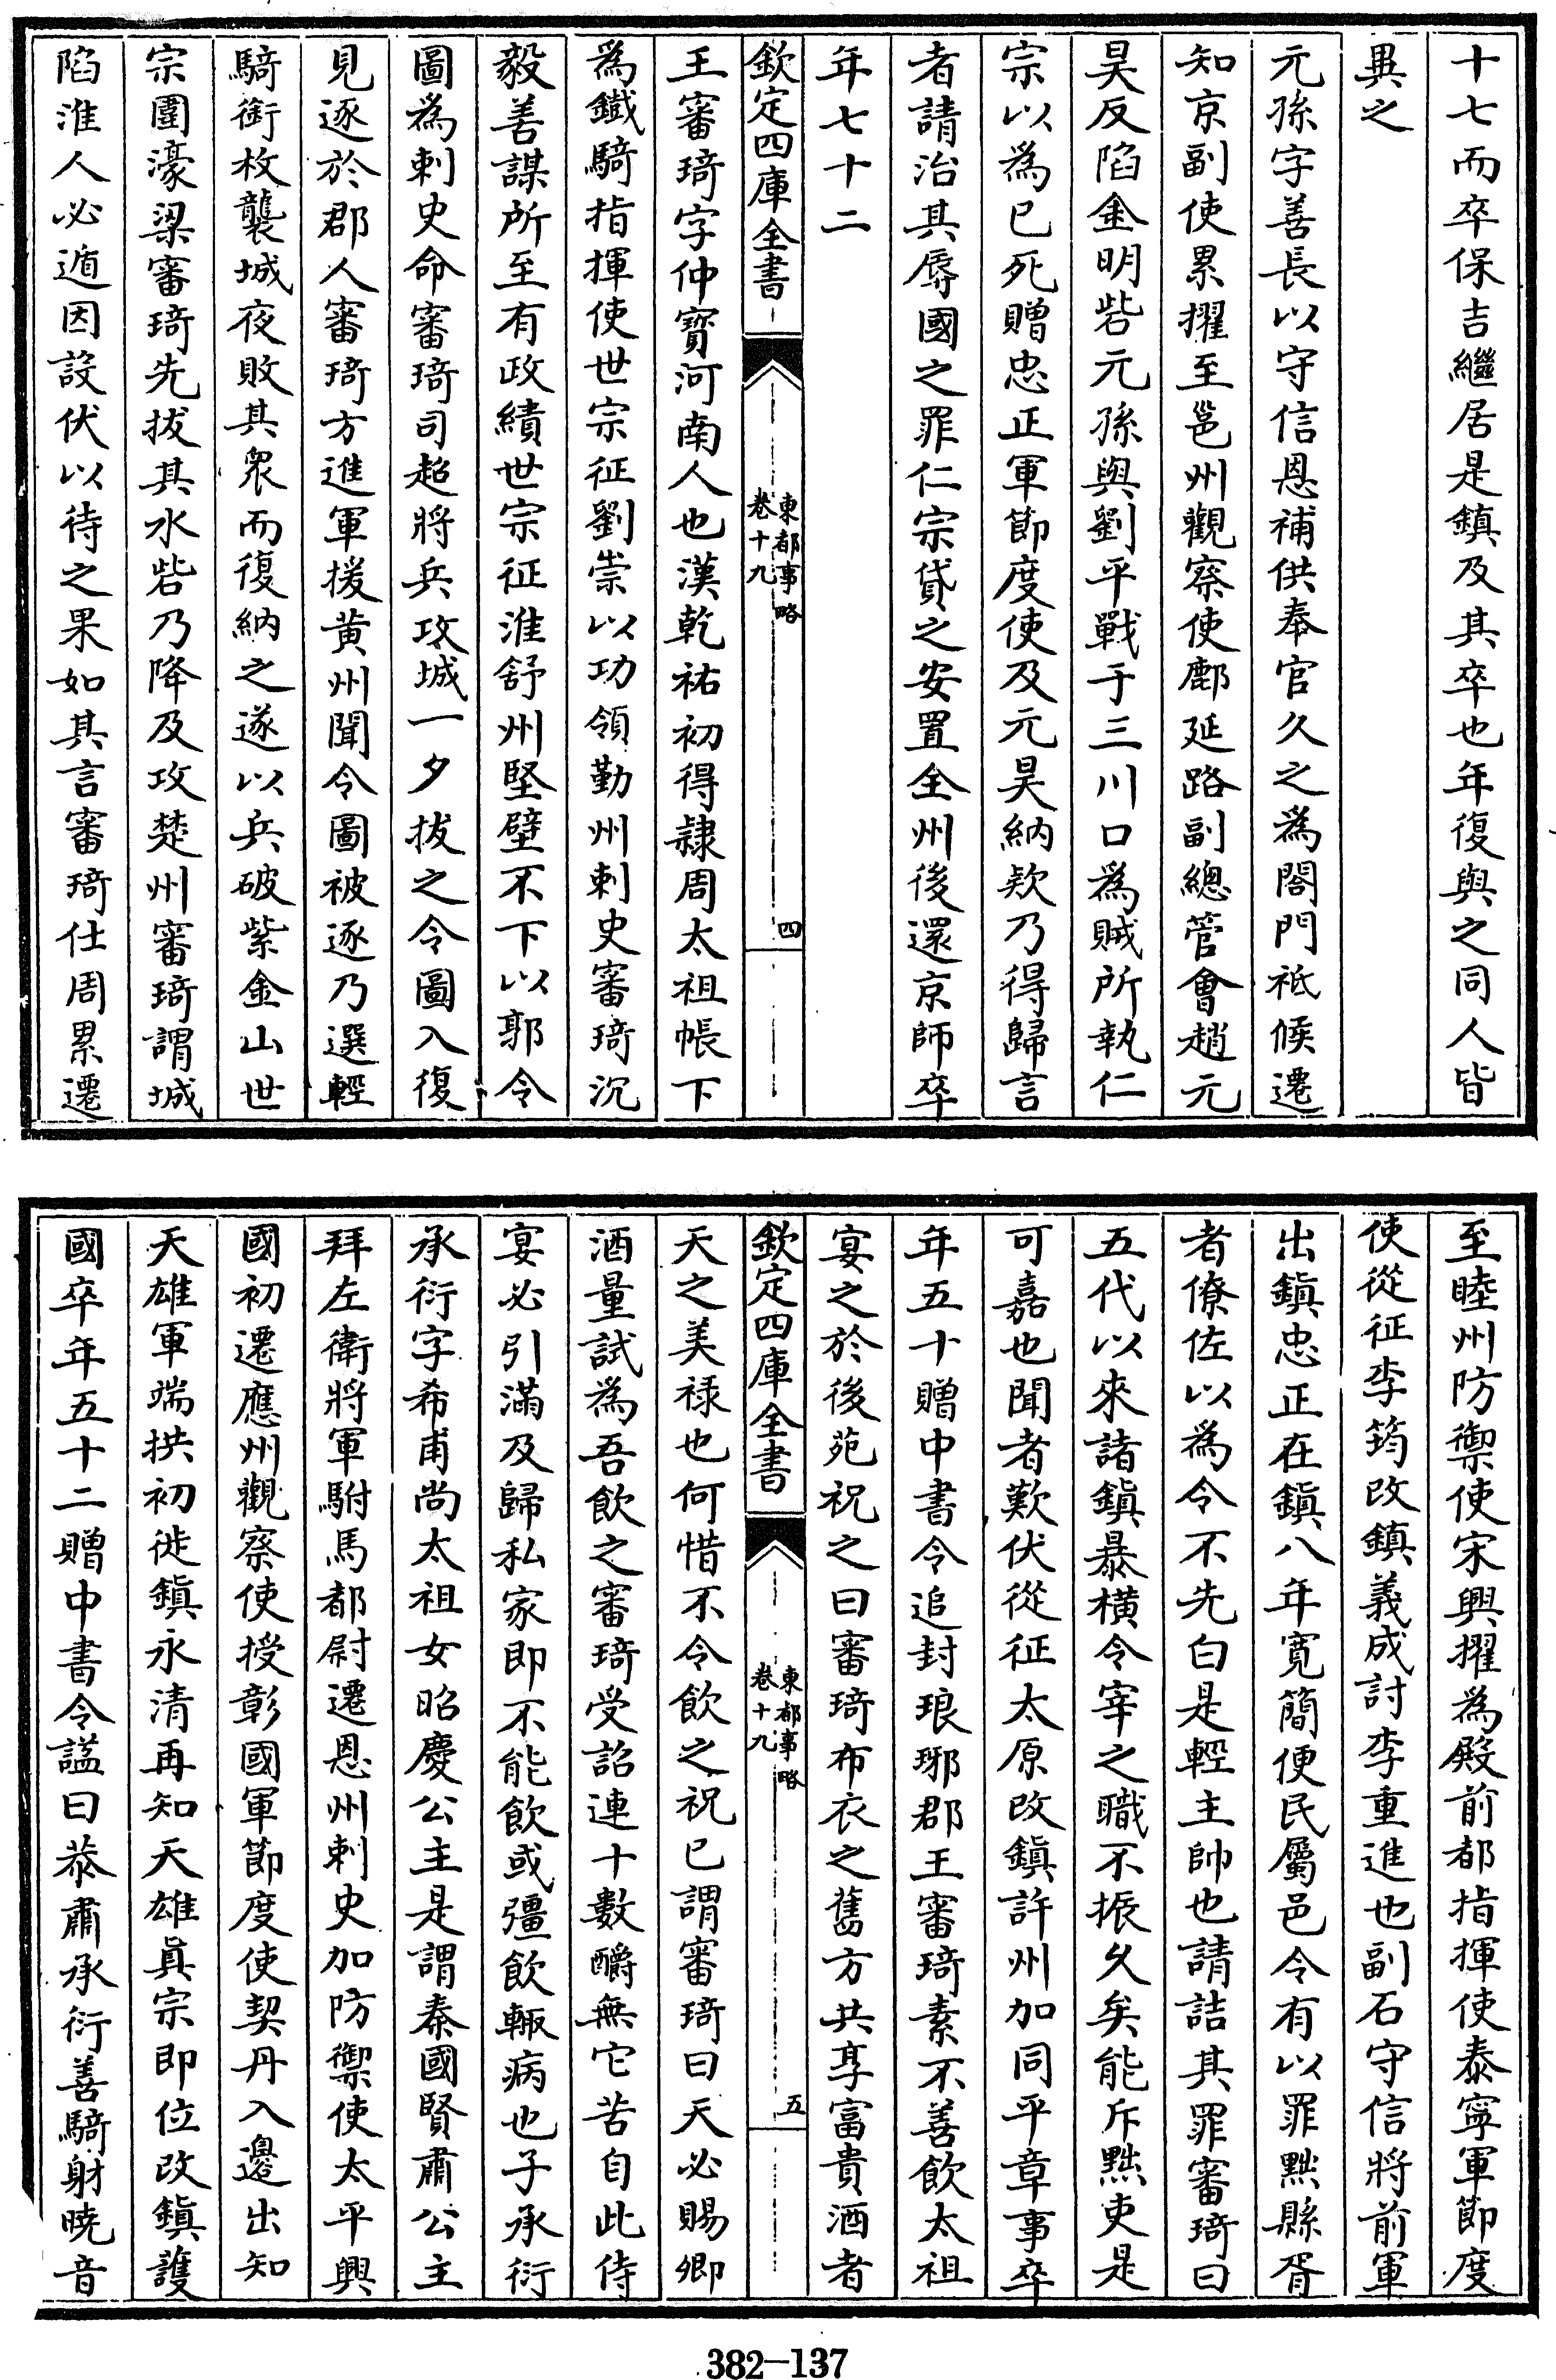 十七而卒保吉繼居是鎮及其卒也年復與之同人皆
異之
元孫字善長以守信恩補供奉官久之為閤門祗候遷
知京副使累擢至邕州觀察使鄜延路副總管會趙元
昊反陷金明砦元孫與劉平戰于三川口為賊所執仁
宗以為已死贈忠正軍節度使及元昊納欵乃得歸言
者請治其辱國之罪仁宗貸之安置全州後還京師卒
年七十二
欽定四庫全書
東都事略
卷十九
四
王審琦字仲寳河南人也漢乾祐初得隷周太祖帳下
為鐵騎指揮使世宗征劉崇以功領勤州刺史審琦沉
毅善謀所至有政績世宗征淮舒州堅壁不下以郭令
圖為刺史命審琦司超將兵攻城一夕拔之令圖入復
見逐於郡人審琦方進軍援黄州聞令圖被逐乃選輕
騎銜枚襲城夜敗其衆而復納之遂以兵破紫金山世
宗圍濠梁審琦先拔其水砦乃降及攻楚州審琦謂城
陷淮人必遁因設伏以待之果如其言審琦仕周累遷
至睦州防禦使宋興擢為殿前都指揮使泰寧軍節度
使從征李筠改鎮義成討李重進也副石守信將前軍
出鎮忠正在鎮八年寛簡便民屬邑令有以罪黜縣胥
者僚佐以為令不先白是輕主帥也請詰其罪審琦曰
五代以來諸鎮暴橫令宰之職不振久矣能斥黜吏是
可嘉也聞者歎伏從征太原改鎮許州加同平章事卒
年五十贈中書令追封琅琊郡王審琦素不善飲太祖
宴之於後苑祝之曰審琦布衣之舊方共享富貴酒者
欽定四庫全書
東都事略
卷十九
五
天之美禄也何惜不令飲之祝已謂審琦曰天必賜卿
酒量試為吾飲之審琦受詔連十數釂無它苦自此侍
宴必引滿及歸私家即不能飲或彊飲輒病也子承衍
承衍字希甫尚太祖女昭慶公主是謂秦國賢肅公主
拜左衛將軍駙馬都尉遷恩州刺史加防禦使太平興
國初遷應州觀察使授彰國軍節度使契丹入邊出知
天雄軍端拱初徙鎮永清再知天雄眞宗即位改鎮護
國卒年五十二贈中書令諡曰恭肅承衍善騎射曉音
382-137